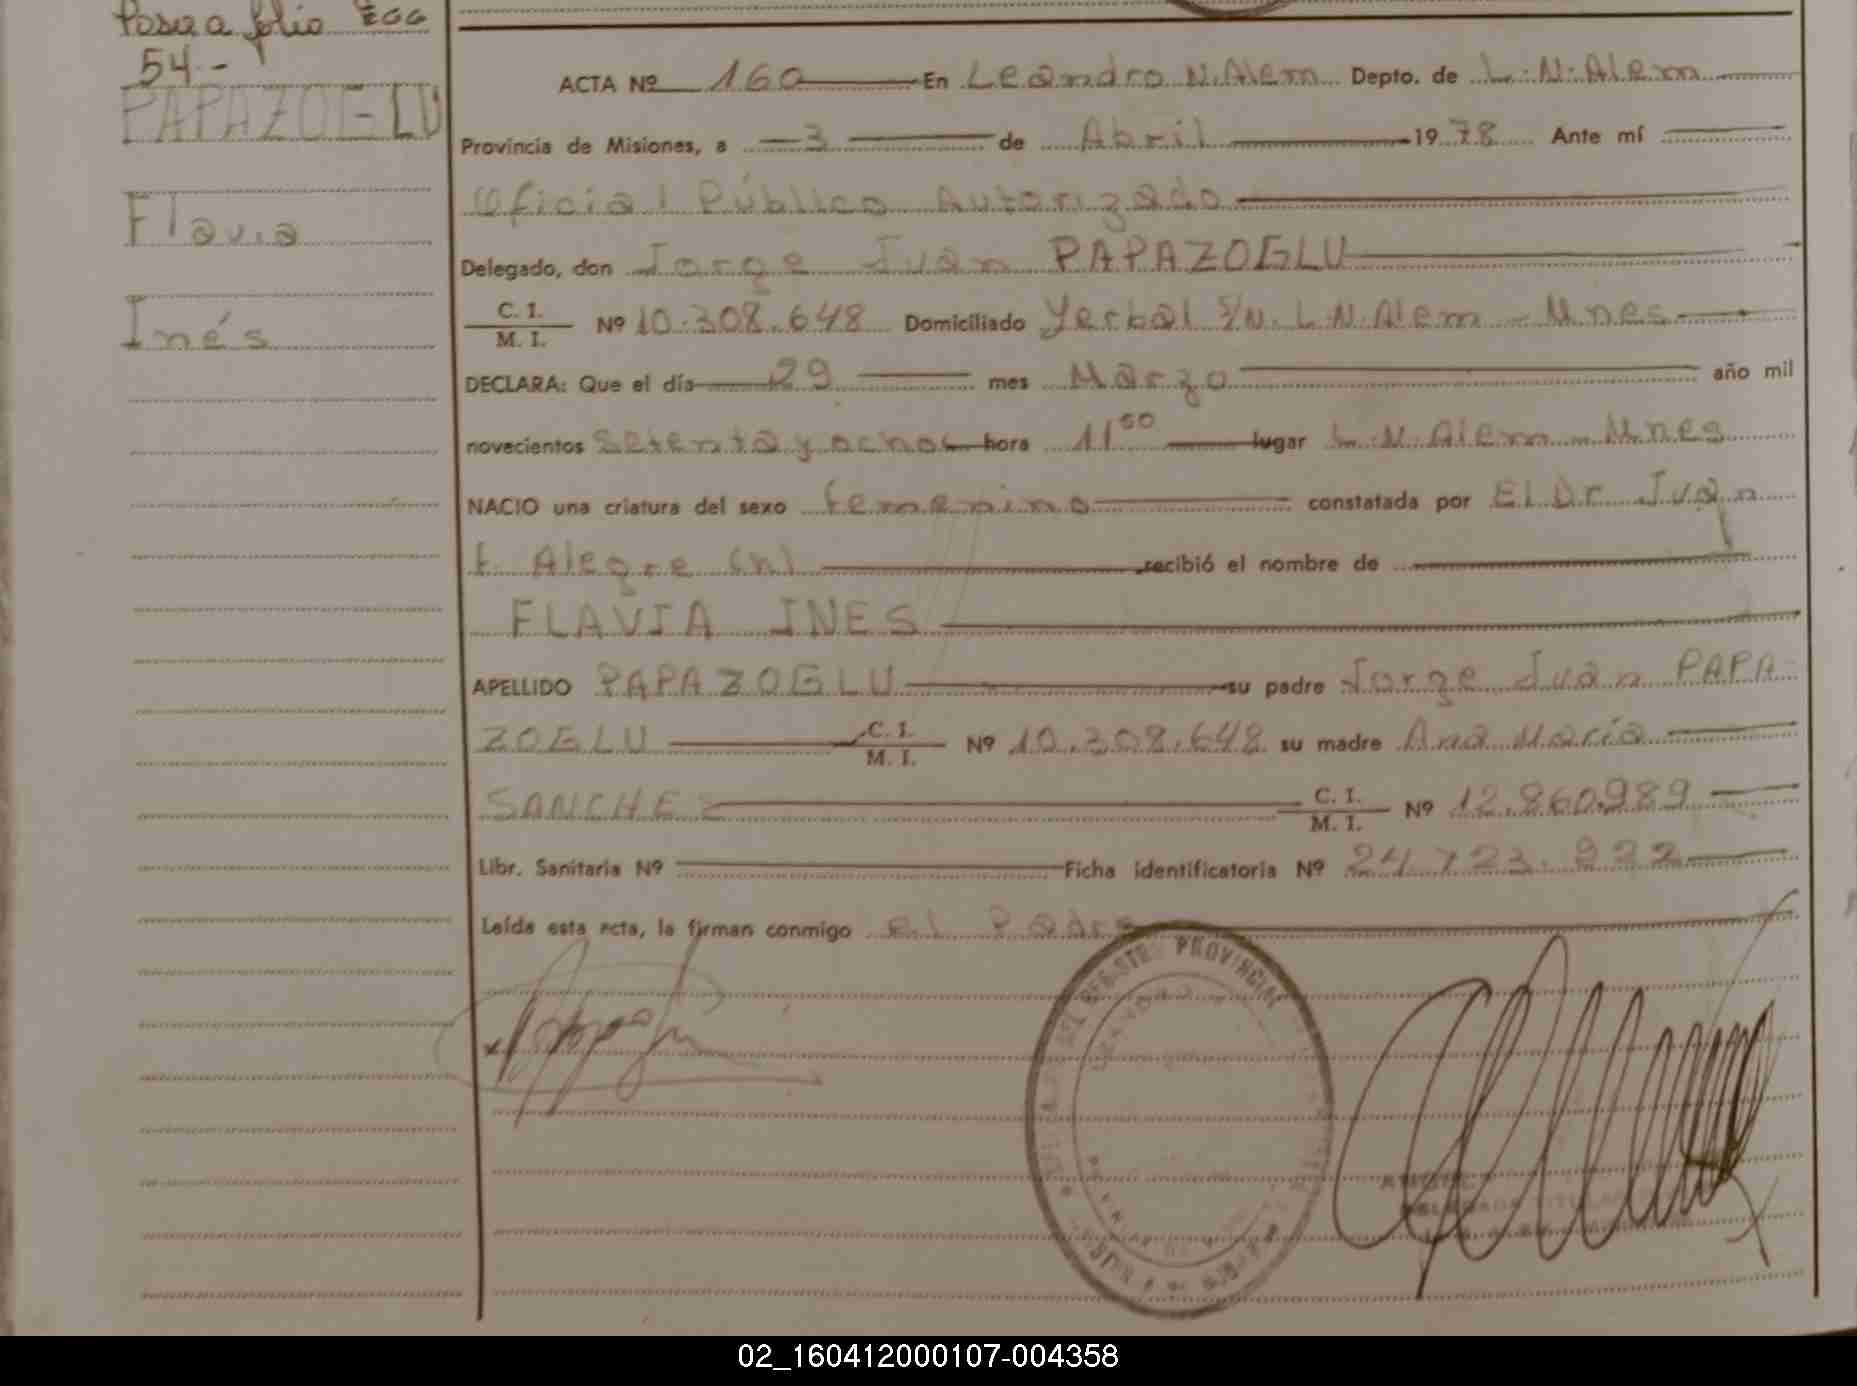 Pasa a folio
54.-
PAPAZOGLU
Flavia
Inés
ACTA Nº 160 En Leandro N. Alem Depto. de L. N. Alem
Provincia de Misiones, a 3 de Abril 1978 Ante mí
Oficial Público Autorizado
Delegado, don Jorge Juan PAPAZOGLU
C. I.
M. I. Nº 10.308.648 Domiciliado Yerbal S/N. L.N. Alem - Mnes
DECLARA: Que el día 29 mes Marzo año mil
novecientos Setenta y ocho hora 11 lugar L. N. Alem - Mnes
NACIO una criatura del sexo femenino constatada por El Dr Juan
F. Alegre (h) recibió el nombre de
FLAVIA INES
APELLIDO PAPAZOGLU su padre Jorge Juan PAPA-
ZOGLU C. I. M. I. Nº 10.308.648 su madre Ana María
SANCHEZ C. I. M. I. Nº 12.860.989
Libr. Sanitaria Nº Ficha identificatoria Nº 24.723.922
Leída esta acta, la firman conmigo el Padre
DEL REGISTRO PROVINCIAL
02_160412000107-004358